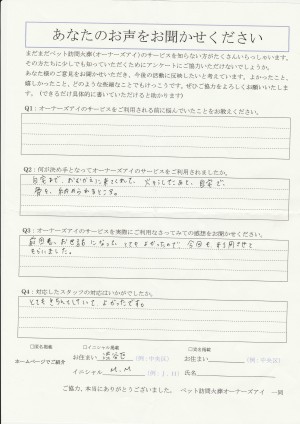 あなたのお声をお聞かせください
まだまだペット訪問火葬(オーナーズアイ)のサービスを知らない方がたくさんいらっしゃいます。
その方たちに少しでも知っていただくためにアンケートにご協力いただけないでしょうか。
あなた様のご意見をお聞かせいただき、今後の活動に反映したいと考えています。よかったこと、
嬉しかったこと、どのような些細なことでもけっこうです。ぜひご協力をよろしくお願いいたしま
す。(できるだけ具体的に書いていただけると助かります)
Q1：オーナーズアイのサービスをご利用される前に悩んでいたことをお教えください。
Q2：何が決め手となってオーナーズアイのサービスをご利用されましたか。
自宅まで、おむかえに来てくれて、火そうしたあと、自宅で、
骨を、納められるところ。
Q3：オーナーズアイのサービスを実際にご利用なさってみての感想をお聞かせください。
前回も、お世話になって、とてもよかったので、今回も、利用させて
もらいました。
Q4：対応したスタッフの対応はいかがでしたか。
とてもきちんとしていてよかったです。
□匿名掲載 □イニシャル掲載 □実名掲載
ホームページでご紹介
お住まい 渋谷区 (例：中央区) お住まい (例：中央区)
イニシャル M.M (例：I．H) 氏名
ご協力、本当にありがとうございました。 ペット訪問火葬オーナーズアイ 一同